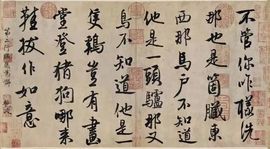 不管你咋樣洗
那也是箇臟東
西那馬户不知道
他是一頭驢那又
鳥不知道他是一
隻鷄豈有畫
堂登猪狗哪来
鞋拔作如意